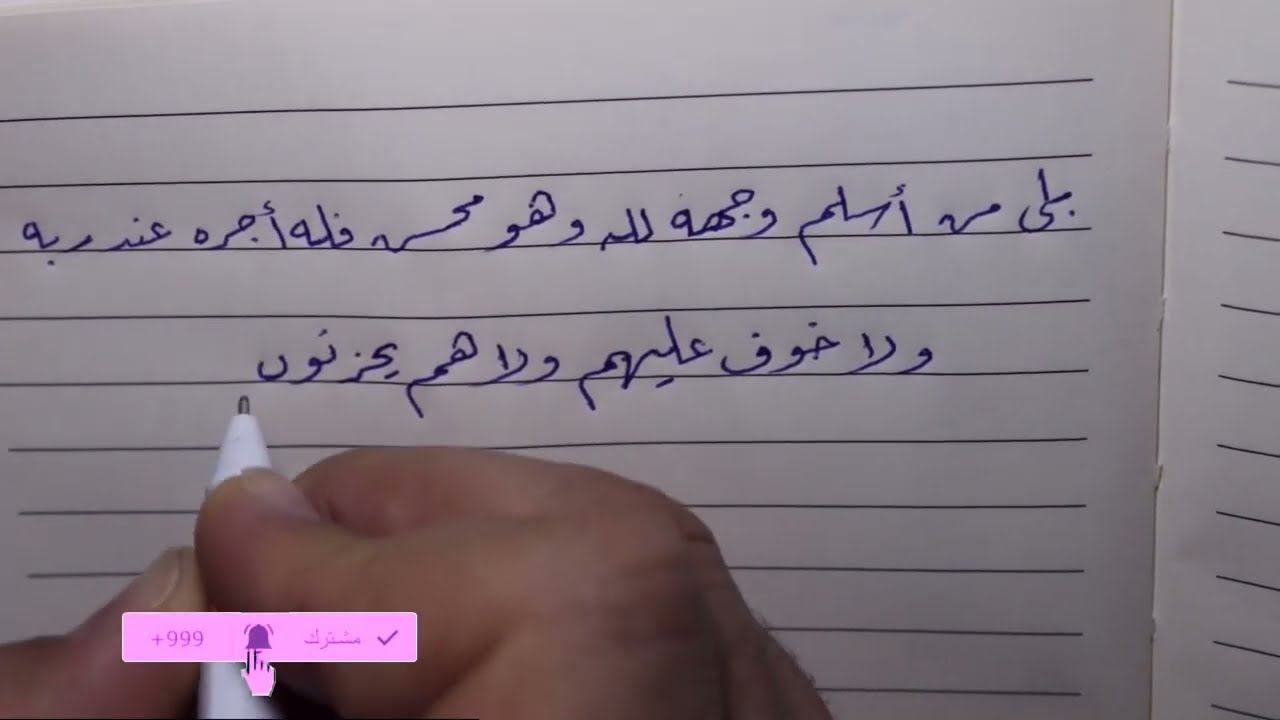 بلى من أسلم وجهه لله وهو محسن فله أجره عند ربه
ولا خوف عليهم ولا هم يحزنون
مشترك 999+